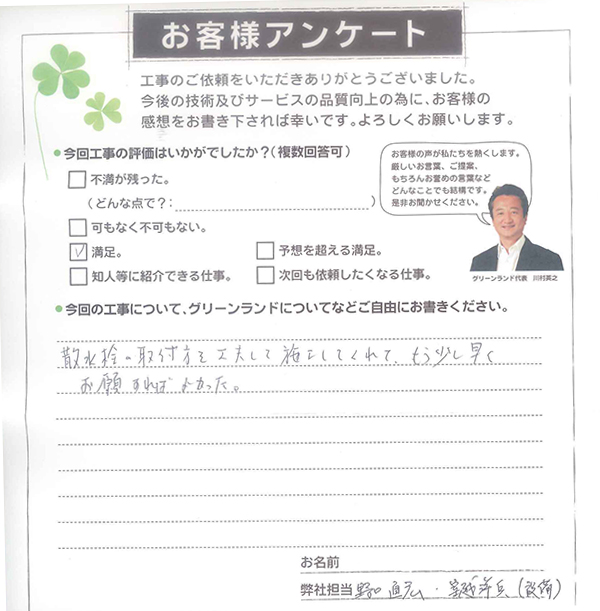 お客様アンケート
工事のご依頼をいただきありがとうございました。
今後の技術及びサービスの品質向上の為に、お客様の
感想をお書き下されば幸いです。よろしくお願いします。
•今回工事の評価はいかがでしたか?(複数回答可)
不満が残った。
(どんな点で?: )
可もなく不可もない。
満足。
予想を超える満足。
知人等に紹介できる仕事。
次回も依頼したくなる仕事。
お客様の声が私たちを熱くします。
厳しいお言葉、ご提案、
もちろんお誉めの言葉など
どんなことでも結構です。
是非お聞かせください。
グリーンランド代表 川村英之
•今回の工事について、グリーンランドについてなどご自由にお書きください。
散水栓の取付方を工夫して施工してくれて、もう少し早く
お願すればよかった。
お名前
弊社担当 直広・ (設備)